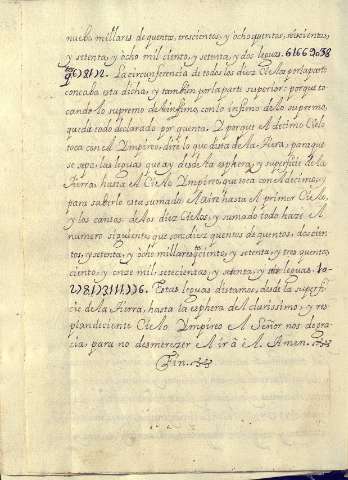 nueba, millares de quentos, trescientos, y ocho quentos, seiscientos,
y setenta, y ocho mil ciento, y setenta, y dos leguas. 61669038
La circunferencia de todos los diez Cielos por la parte
concaba esta dicha; y tambien por la parte superior: porque to
cando lo supremo de lo infimo, con lo infimo de lo supremo,
queda todo declarado por quenta. Y porque el decimo Cielo
toca con el Ympireo, dire lo que dista de la tierra, para que
se sepa, las leguas que ay desde la esphera, y superficie de la
tierra, hasta el Cielo Ympireo, que toca con el decimo, y
para saberlo esta sumado el aire hasta el primer Cielo,
y los cantos de los diez Cielos, y sumado todo haze el
numero siguiente que son diez quentos de quentos, doscien
tos, y setenta, y ocho millares, ciento, y setenta, y tres quentos,
ciento, y onse mil setecientas, y setenta, y seis leguas. 10
Estas leguas distamos, desde la superfi
cie de la tierra, hasta la esphera del clarissimo, y res
plandeciente Cielo Ympireo el Señor nos de gra
cia, para no desmerezer el ir â êl. Amen.
Fin.